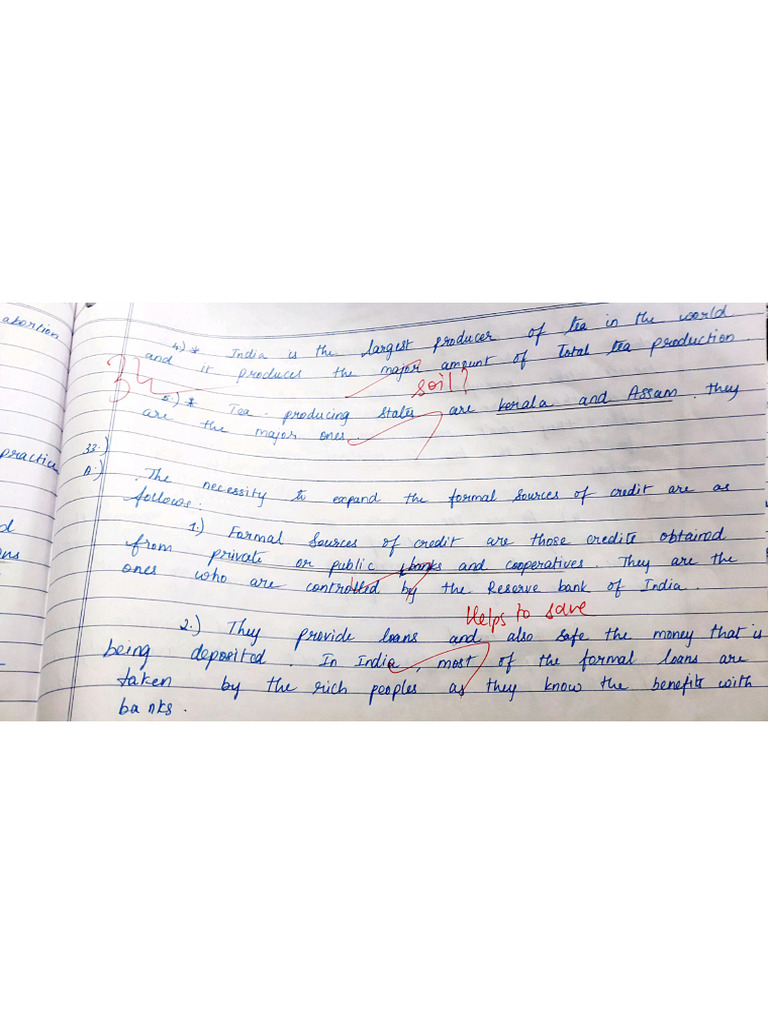 abortion
practice
4.) * India is the largest producer of tea in the world
and it produces the major amount of Total tea production.
soil?
5.) * Tea producing states are kerala and Assam. They
are the major ones.
33.)
a.) The necessity to expand the formal sources of credit are as
follows:
1.) Formal sources of credit are those credits obtained
from private or public banks and cooperatives. They are the
ones who are controlled by the Reserve bank of India.
Helps to save
2.) They provide loans and also safe the money that is
being deposited. In India, most of the formal loans are
taken by the rich peoples as they know the benefits with
banks.